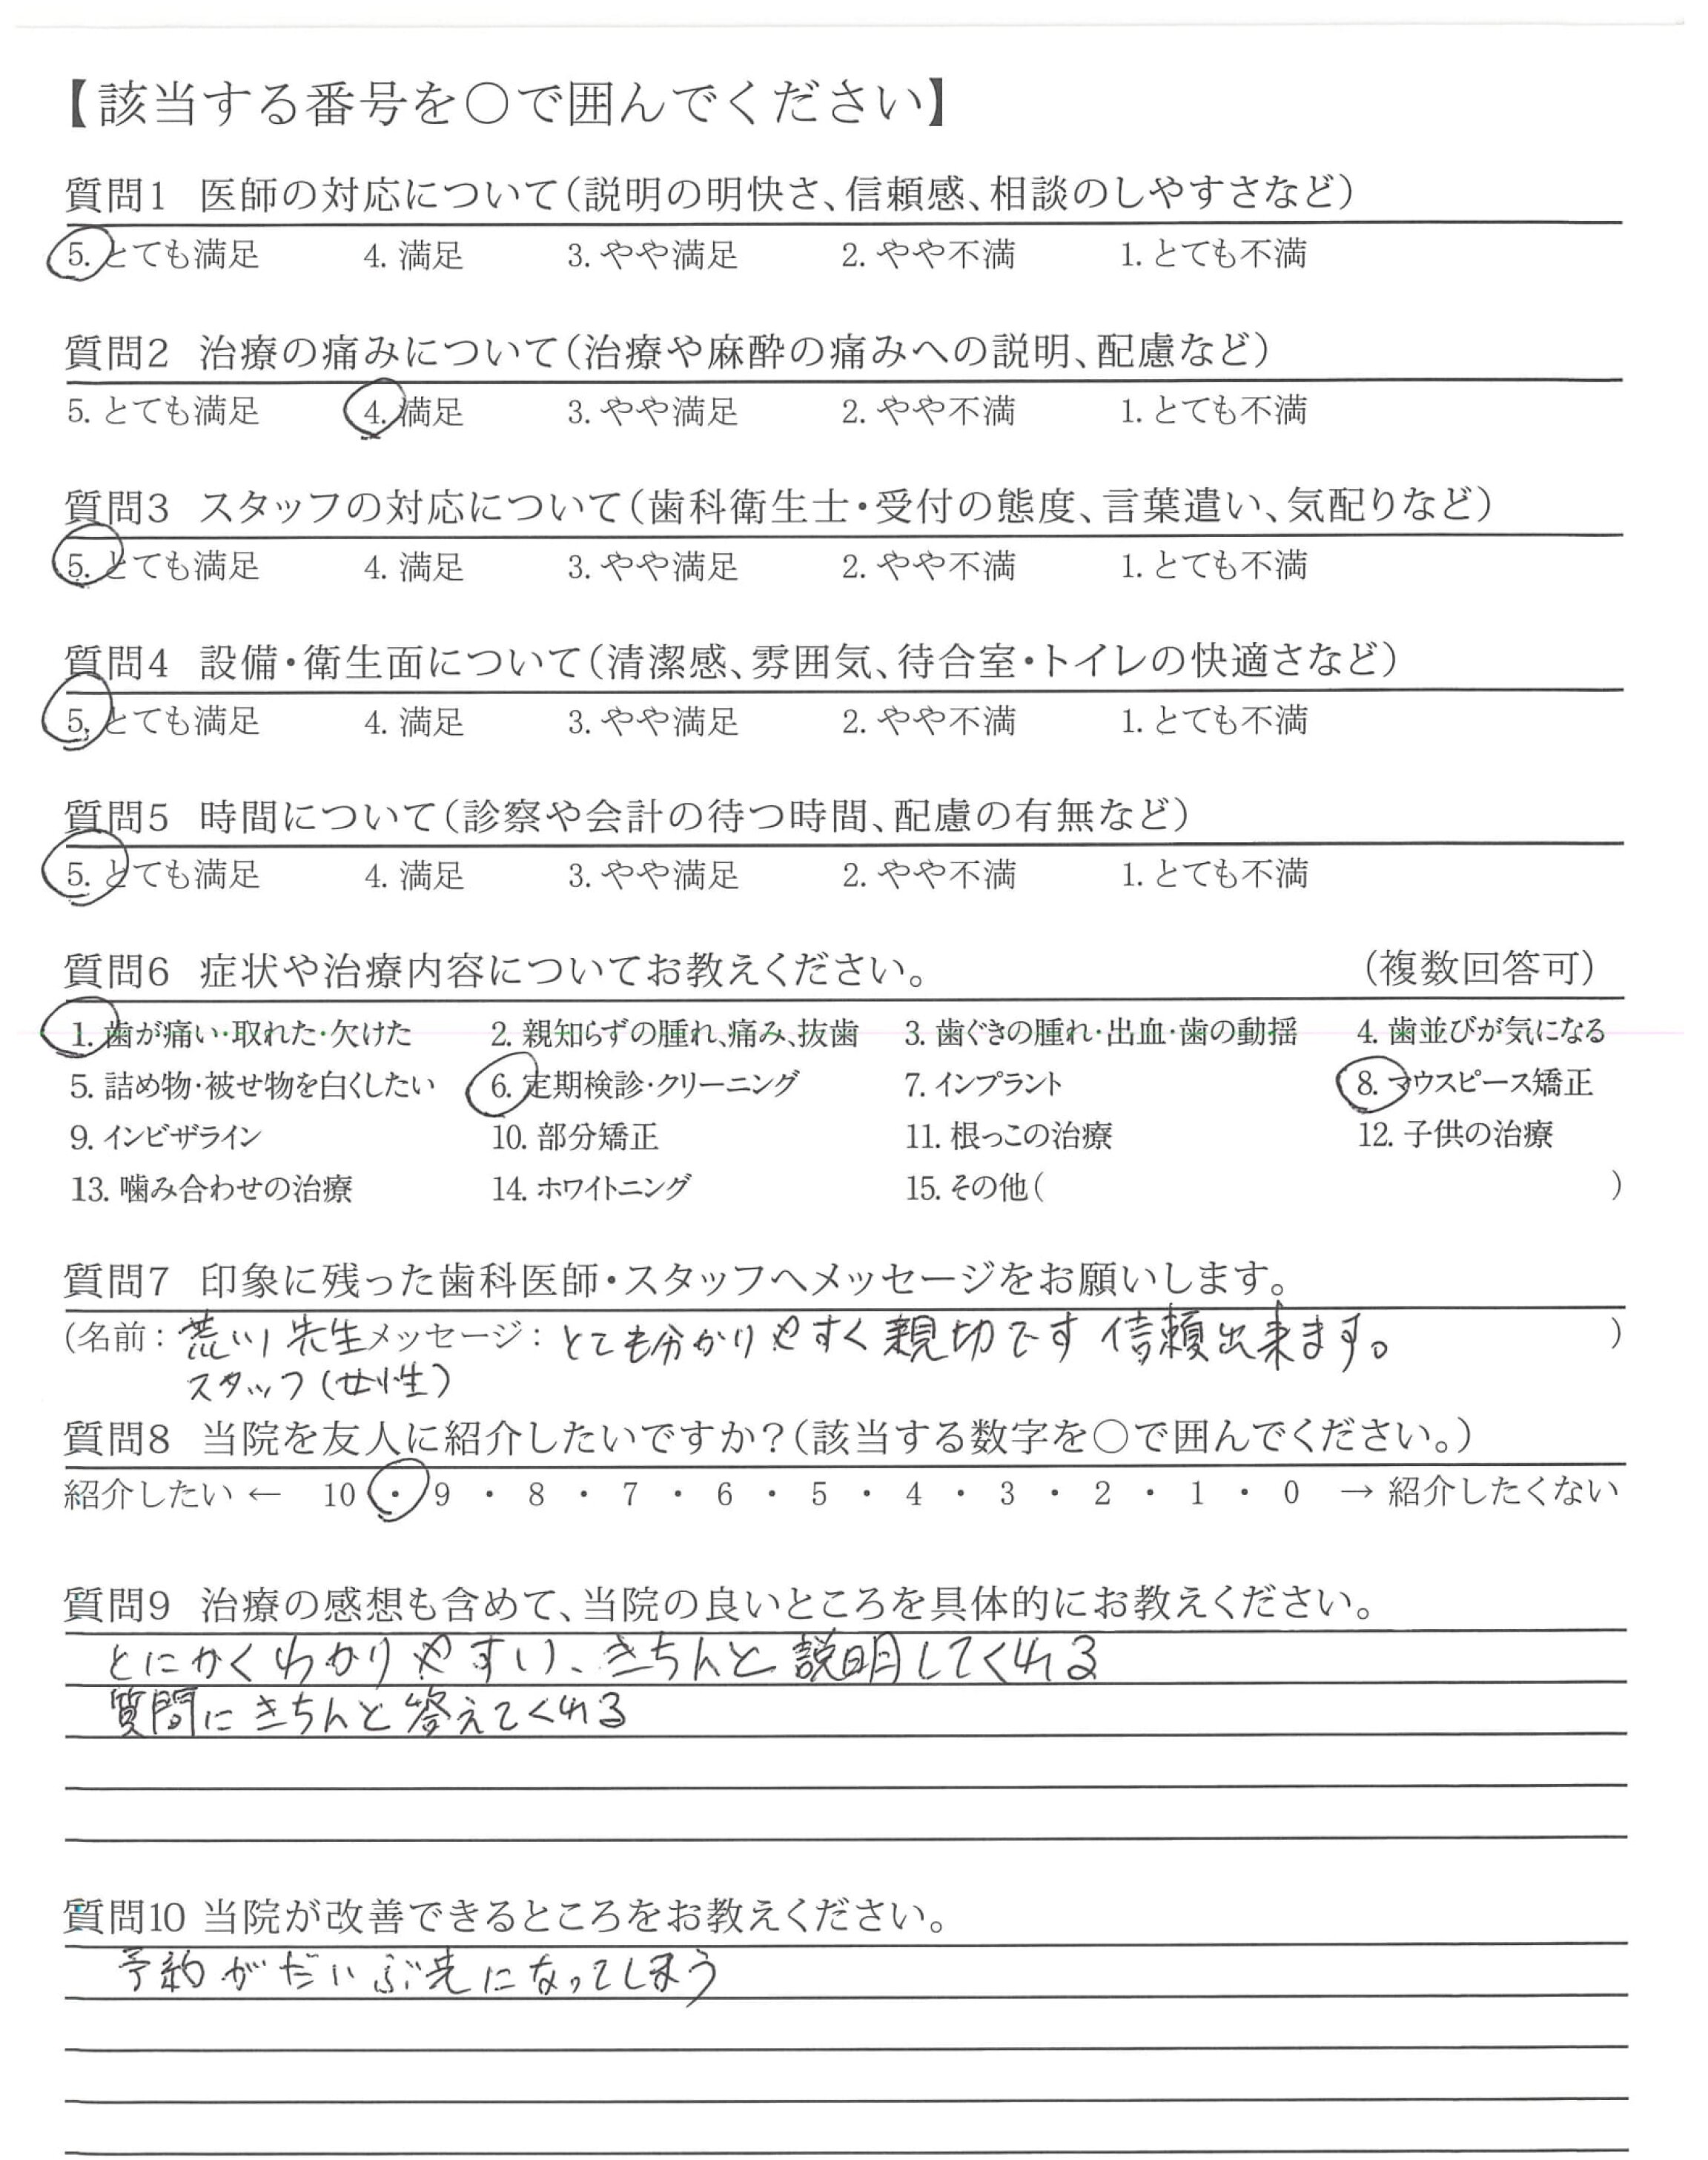 【該当する番号を○で囲んでください】
質問1 医師の対応について(説明の明快さ、信頼感、相談のしやすさなど)
5. とても満足 4. 満足 3. やや満足 2. やや不満 1. とても不満
質問2 治療の痛みについて(治療や麻酔の痛みへの説明、配慮など)
5. とても満足 4. 満足 3. やや満足 2. やや不満 1. とても不満
質問3 スタッフの対応について(歯科衛生士・受付の態度、言葉遣い、気配りなど)
5. とても満足 4. 満足 3. やや満足 2. やや不満 1. とても不満
質問4 設備・衛生面について(清潔感、雰囲気、待合室・トイレの快適さなど)
5. とても満足 4. 満足 3. やや満足 2. やや不満 1. とても不満
質問5 時間について(診察や会計の待つ時間、配慮の有無など)
5. とても満足 4. 満足 3. やや満足 2. やや不満 1. とても不満
質問6 症状や治療内容についてお教えください。 (複数回答可)
1. 歯が痛い・取れた・欠けた 2. 親知らずの腫れ、痛み、抜歯 3. 歯ぐきの腫れ・出血・歯の動揺 4. 歯並びが気になる
5. 詰め物・被せ物を白くしたい 6. 定期検診・クリーニング 7. インプラント 8. マウスピース矯正
9. インビザライン 10. 部分矯正 11. 根っこの治療 12. 子供の治療
13. 噛み合わせの治療 14. ホワイトニング 15. その他( )
質問7 印象に残った歯科医師・スタッフへメッセージをお願いします。
(名前: 荒川先生 メッセージ: とても分かりやすく親切です 信頼出来ます。 )
スタッフ(女性)
質問8 当院を友人に紹介したいですか?(該当する数字を○で囲んでください。)
紹介したい ← 10 ・ 9 ・ 8 ・ 7 ・ 6 ・ 5 ・ 4 ・ 3 ・ 2 ・ 1 ・ 0 → 紹介したくない
質問9 治療の感想も含めて、当院の良いところを具体的にお教えください。
とにかくわかりやすい、きちんと説明してくれる
質問にきちんと答えてくれる
質問10 当院が改善できるところをお教えください。
予約がだいぶ先になってしまう